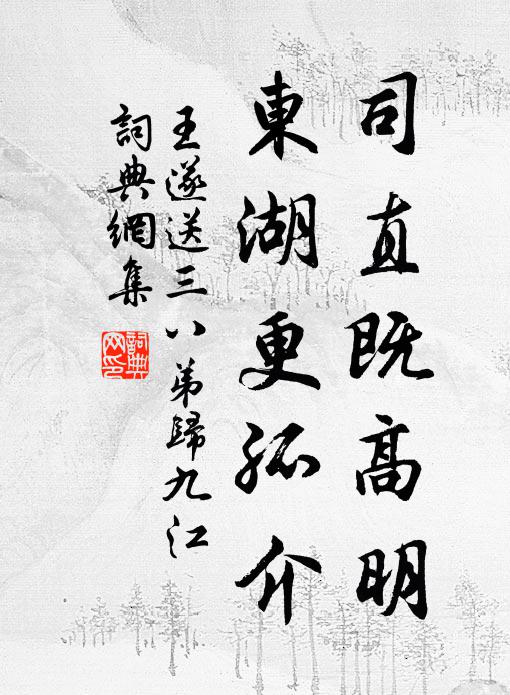 司直既高明
東湖更孤介
王遂送三八弟歸九江
詞典網集
詞典網印